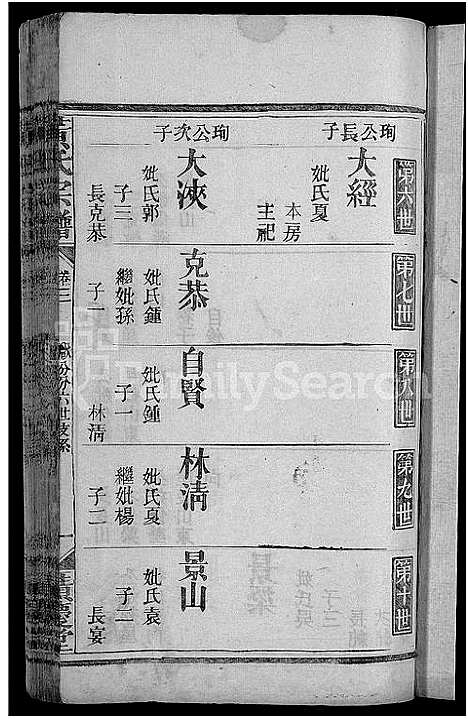 第六世
第七世
第八世
第九世
第十世
珣公長子
大經
妣氏夏
本房
主祀
珣公次子
大浹
妣氏郭
子三
長克恭
克恭
妣氏鍾
繼妣孫
子一
自賢
妣氏鍾
子一
林淸
林淸
妣氏夏
繼妣楊
子二
景山
妣氏袁
子二
長宴
氏宗譜
卷三
FamilySearch